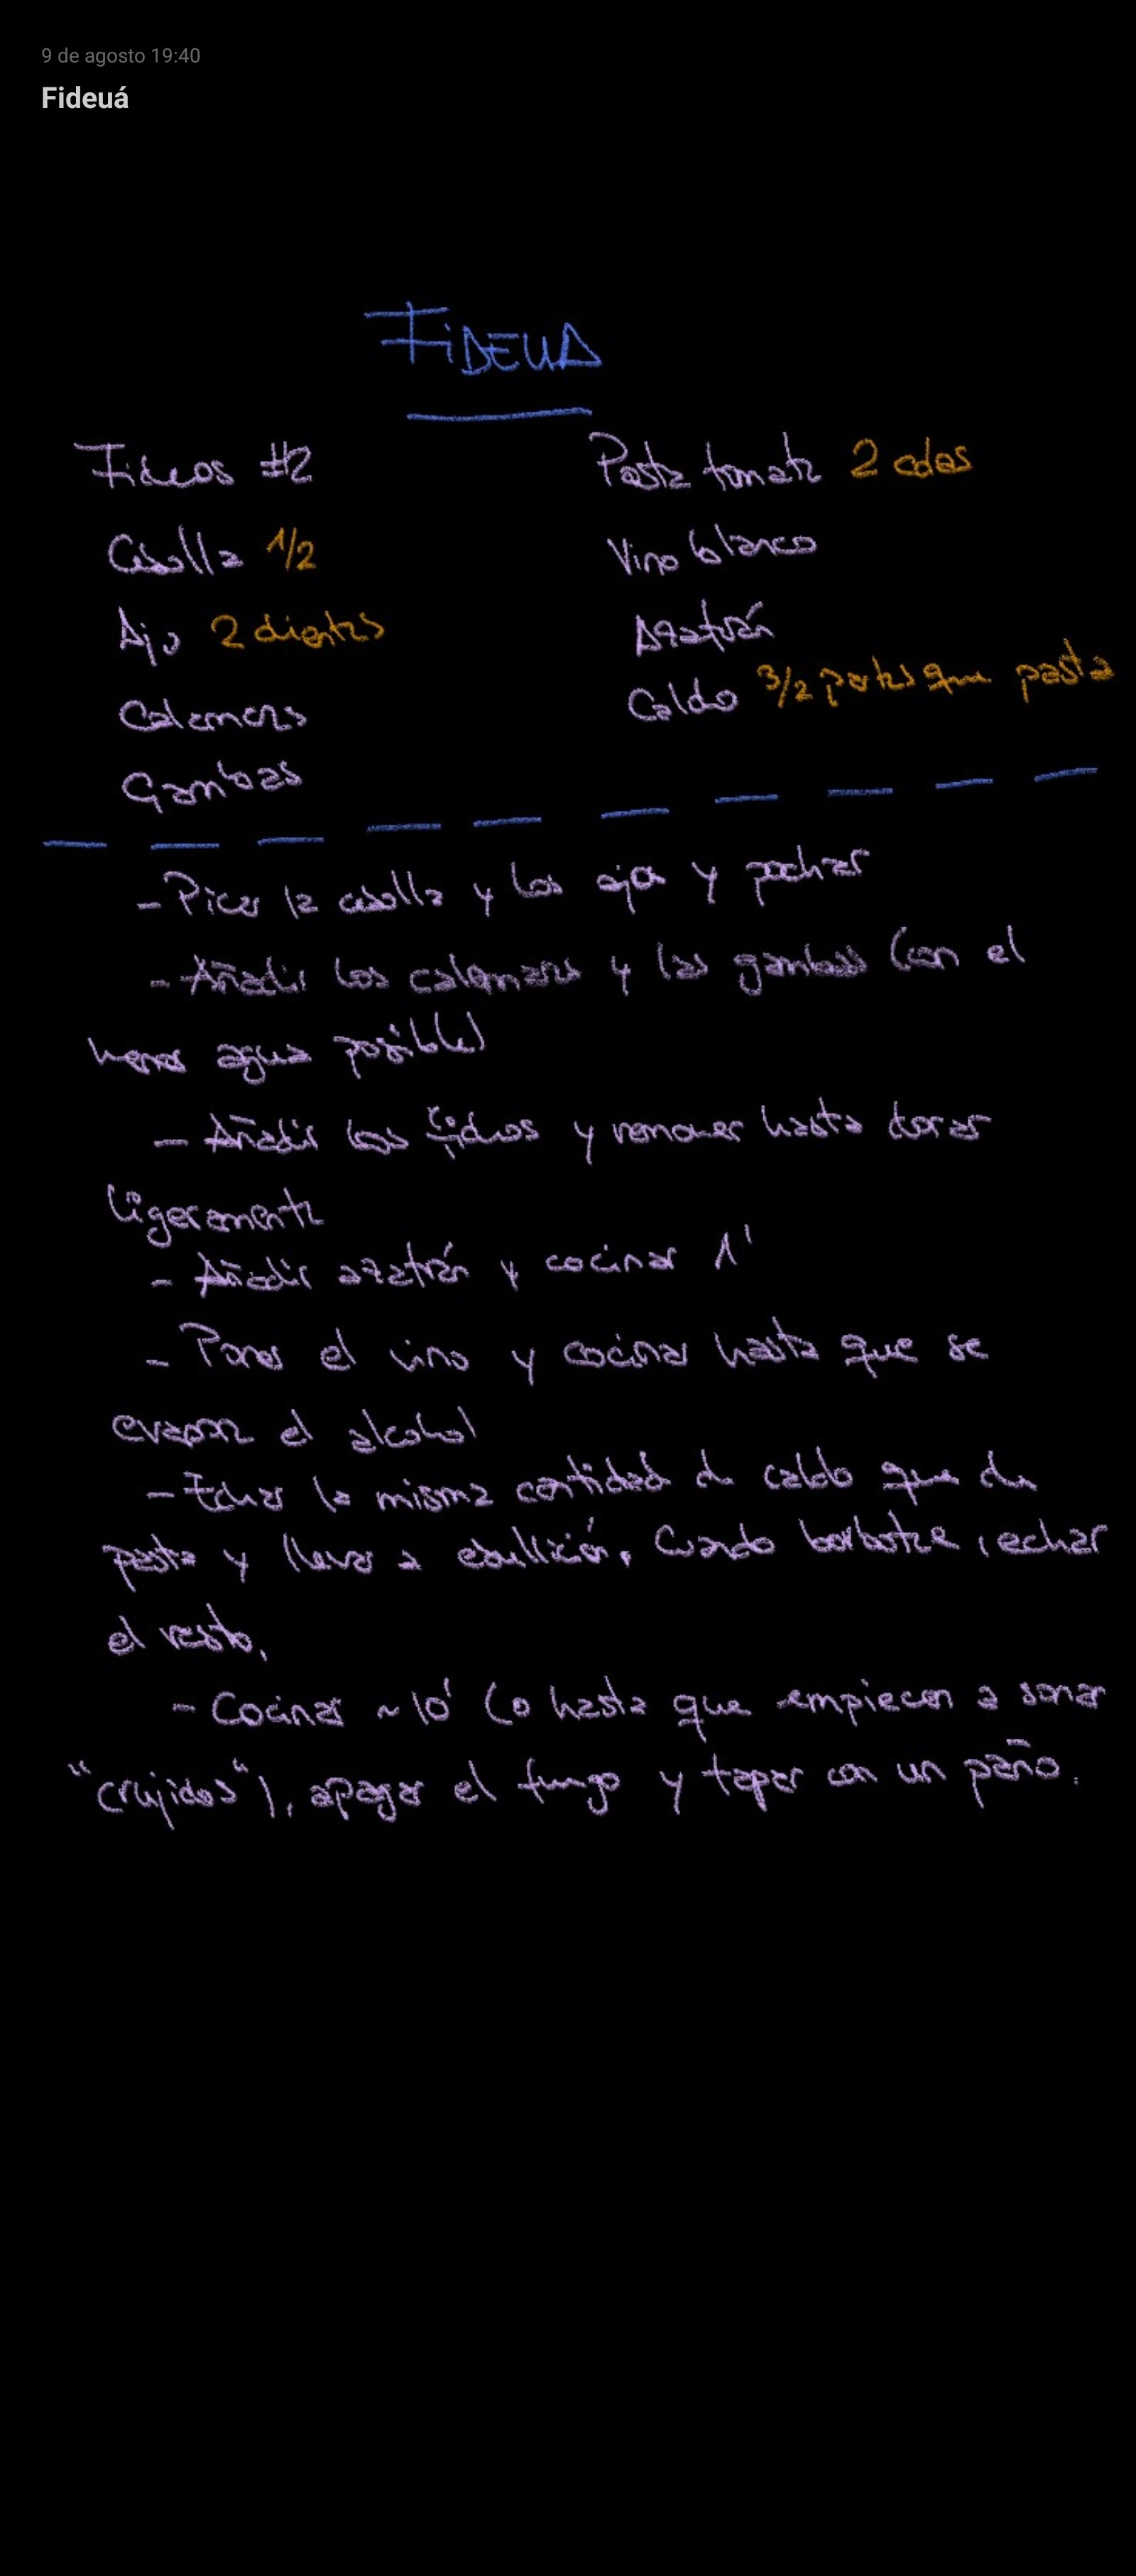 9 de agosto 19:40
Fideuá
FiDEUA
Fideos #2
Cebolla 1/2
Ajo 2 dientes
Calamares
Gambas
Pasta tomate 2 cdas
Vino blanco
Azafrán
Caldo 3/2 partes que pasta
- Picar la cebolla y los ajos y pochar
- Añadir los calamares y las gambas (con el
menos agua posible)
- Añadir los fideos y remover hasta dorar
ligeramente
- Añadir azafrán y cocinar 1'
- Poner el vino y cocinar hasta que se
evapore el alcohol
- Echar la misma cantidad de caldo que de
pasta y llevar a ebullición. Cuando borbotee, echar
el resto.
- Cocinar ~10' (o hasta que empiecen a sonar
"crujidos"), apagar el fuego y tapar con un paño.